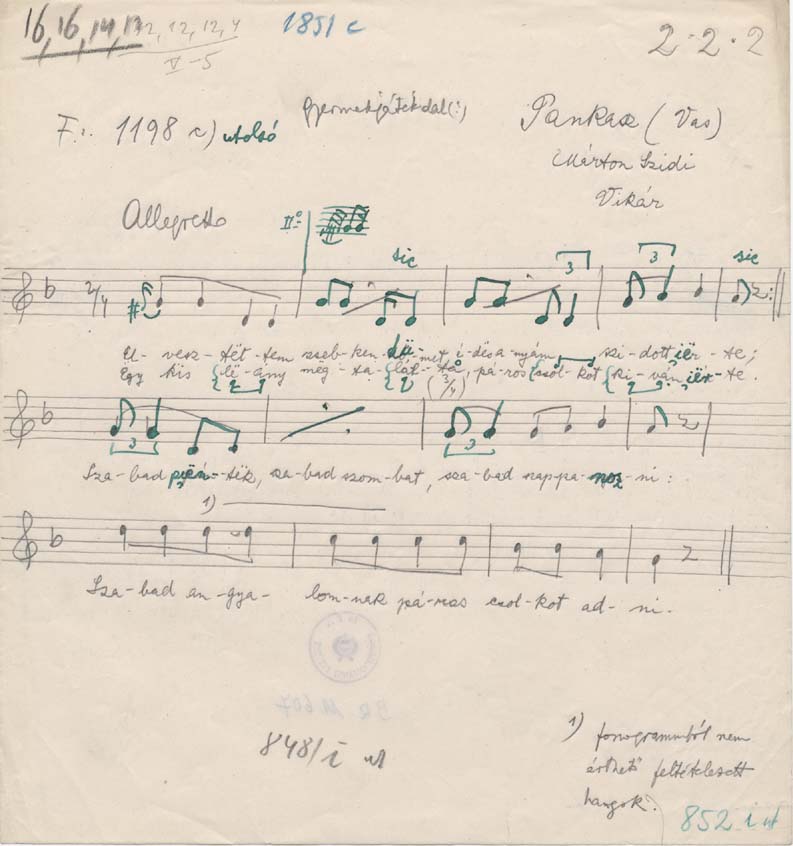 16, 16, 14, 13 12, 12, 12, 4
V-5
1851 c
2-2-2
F.: 1198 c) utolsó
Gyermekjátékdal (:)
Pankasz (Vas)
Márton Szidi
Vikár
Allegretto
IIº
sic
3
3
sic
2/4
El-vesz-tët-tem zseb-ken-dü-met, i-dësa-nyám szi-dott iër-te;
Ëgy kis lë-ány mëg-ta-lál-ta, páros csól-kot ki-ván iër-te.
(3/4)
3
3
Sza-bad piën-tëk, sza-bad szom-bat, sza-bad nap-pa-noz-ni:
1)
Sza-bad an-gya-lom-nak pá-ros csol-kot ad-ni.
848/i
1) fonogrammból nem
érthető feltételezett
hangok.
852 i